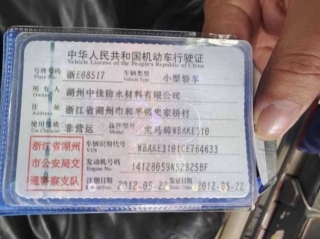 中华人民共和国机动车行驶证
Vehicle License of the People's Republic of China
号牌号码 浙E08517 车辆类型 小型轿车
Plate No. Vehicle Type
所有人 湖州中佳防水材料有限公司
Owner
住址 浙江省湖州市和孚镇
Address
使用性质 非营运 品牌型号 宝马牌WBAKE310
Use Character Model
浙江省湖州 车辆识别代号
VIN
市公安局交 发动机号码
Engine No.
通警察支队 注册日期 2012-05-22 发证日期 2012-05-22